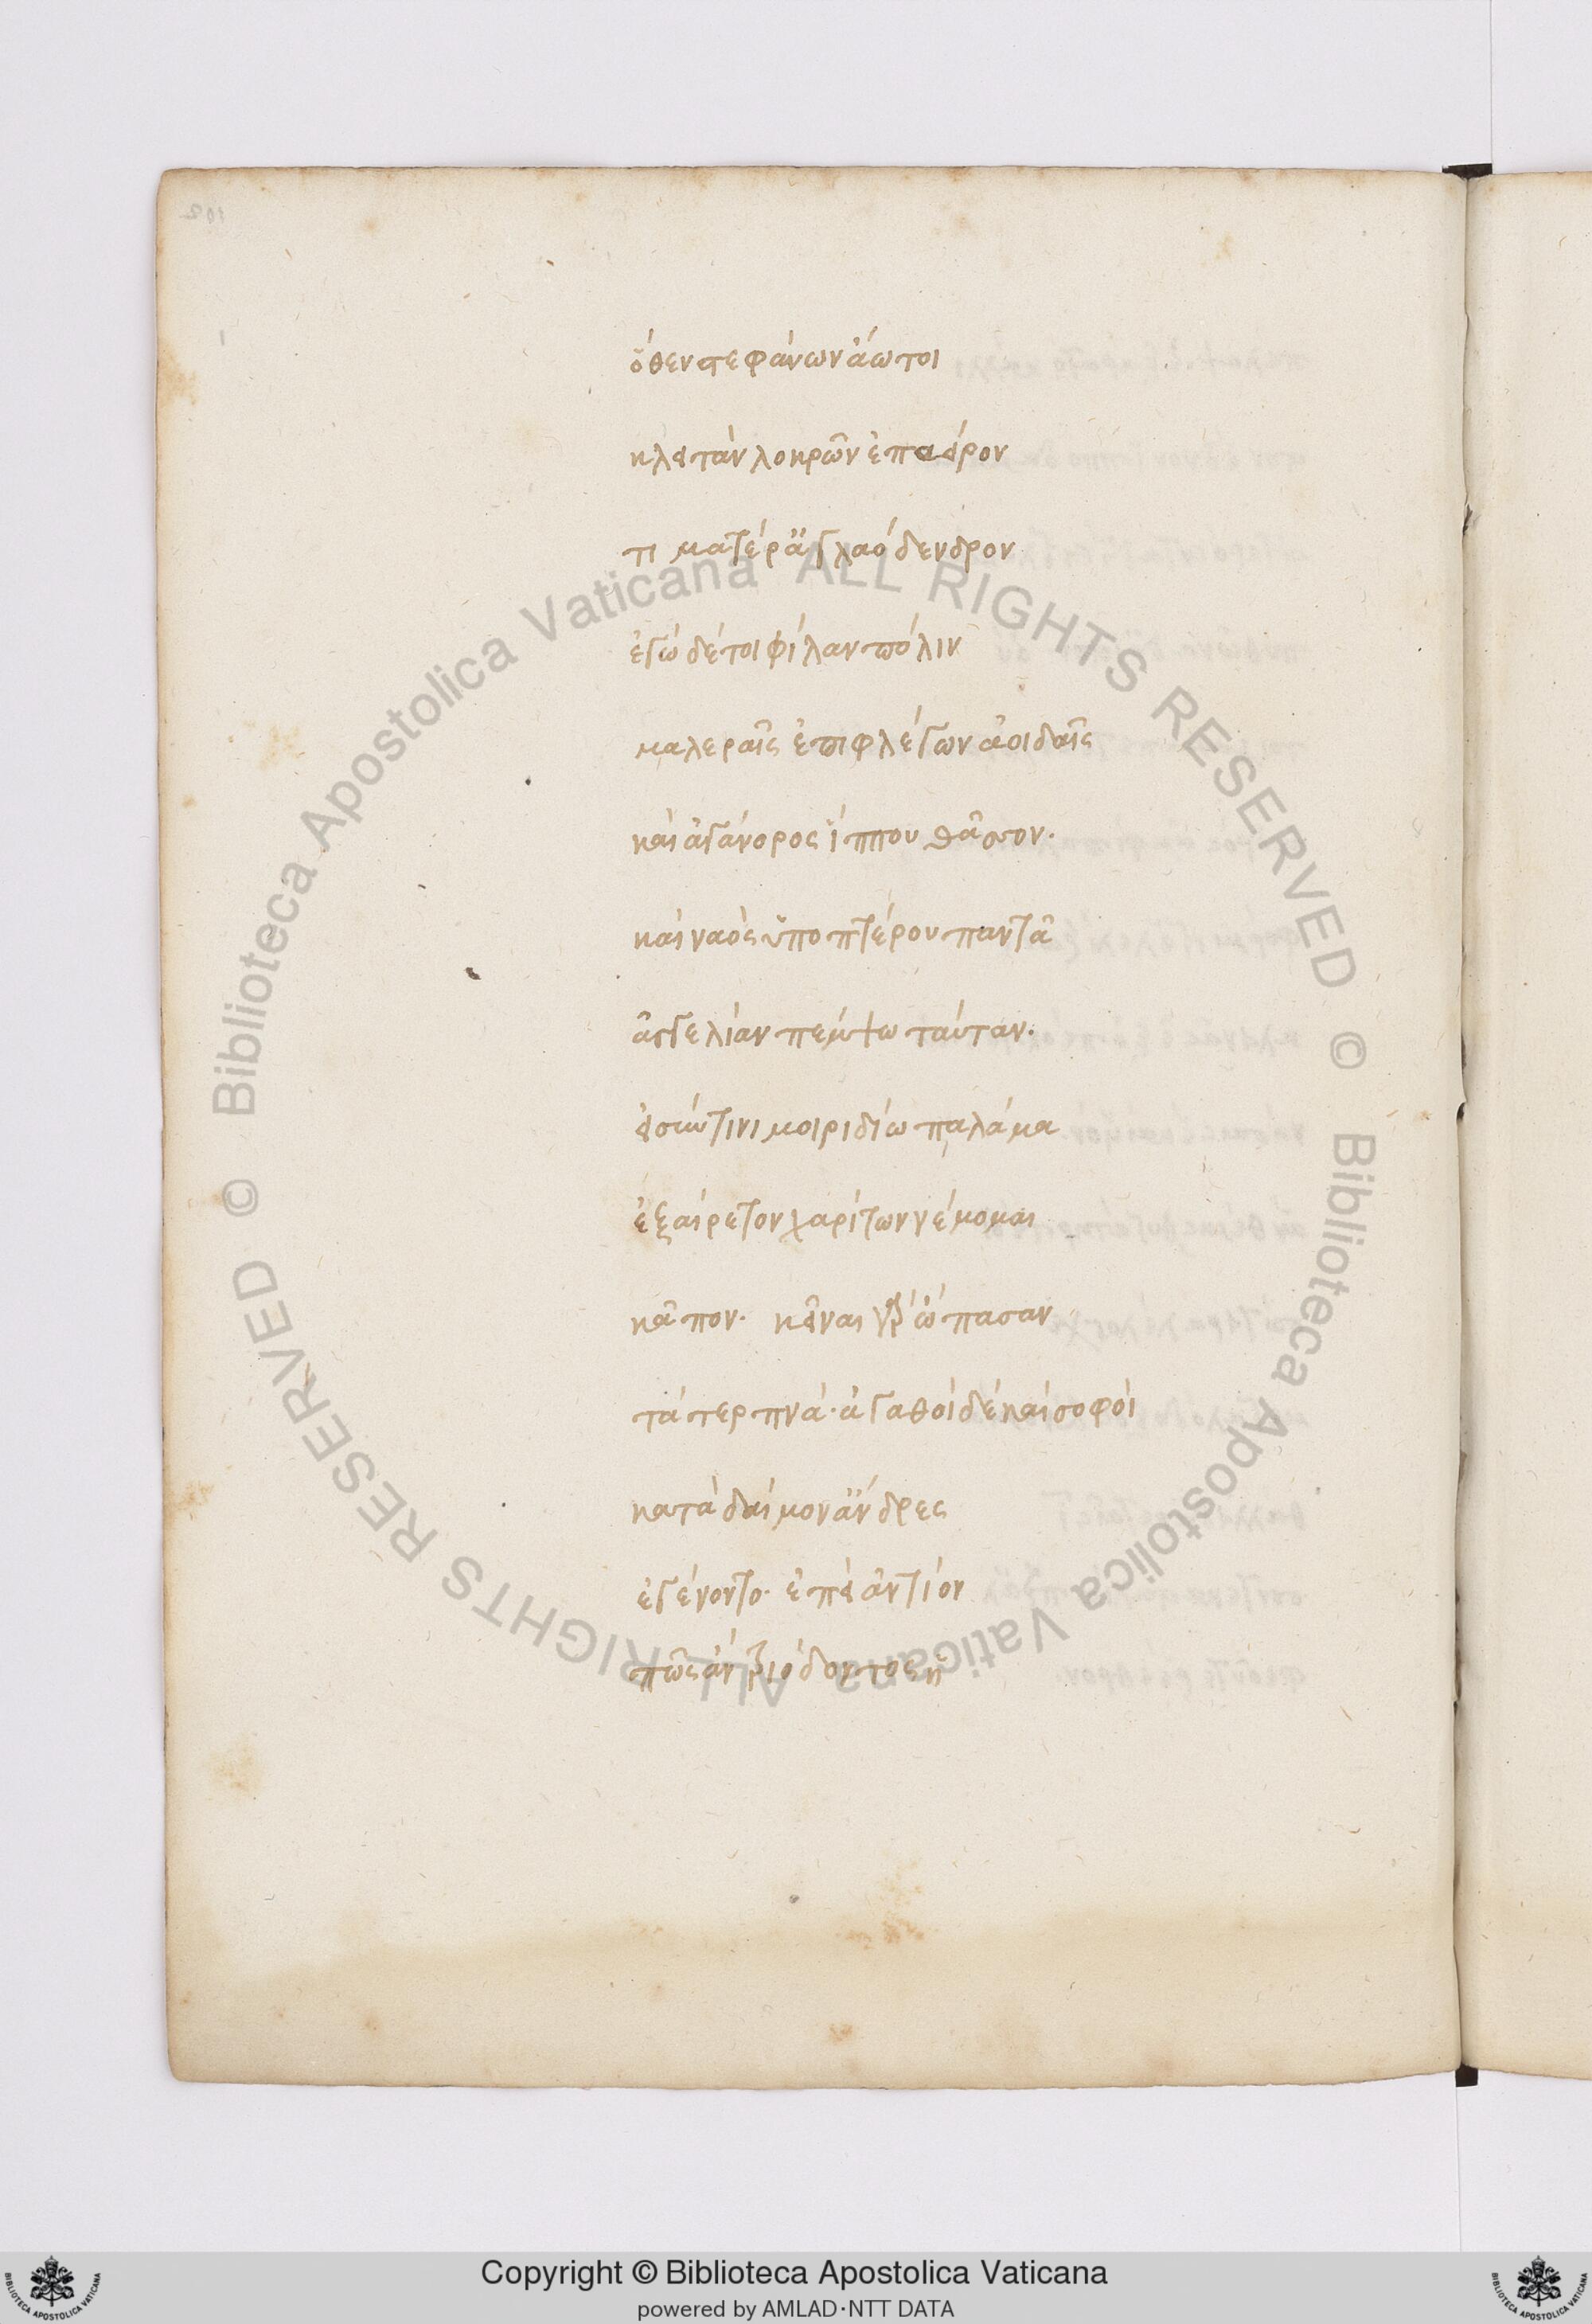 ὅθεν στεφάνων ἄωτοι
κλειτὰν λοκρῶν ἐπαείρον
τι ματέρ ἀγλαόδενδρον
ἐγὼ δέ τοι φίλαν πόλιν
μαλεραῖς ἐπιφλέγων ἀοιδαῖς
καὶ ἀγάνορος ἵππου θᾶσσον.
καὶ ναὸς ὑποπτέρου παντᾶ
ἀγγελίαν πέμψω ταύταν.
εἰ σύν τινι μοιριδίω παλάμα
ἐξαίρετον χαρίτων νέμομαι
κᾶπον. κεῖναι γὰρ ὤπασαν
τὰ τερπνά. ἀγαθοὶ δὲ καὶ σοφοὶ
κατὰ δαίμον ἄνδρες
ἐγένοντο. ἐπεὶ ἀντίον
πῶς ἂν τριόδοντος ἡ
102
Copyright © Biblioteca Apostolica Vaticana
powered by AMLAD·NTT DATA
© Biblioteca Apostolica Vaticana ALL RIGHTS RESERVED
© Biblioteca Apostolica Vaticana ALL RIGHTS RESERVED
BIBLIOTECA APOSTOLICA VATICANA
BIBLIOTECA APOSTOLICA VATICANA